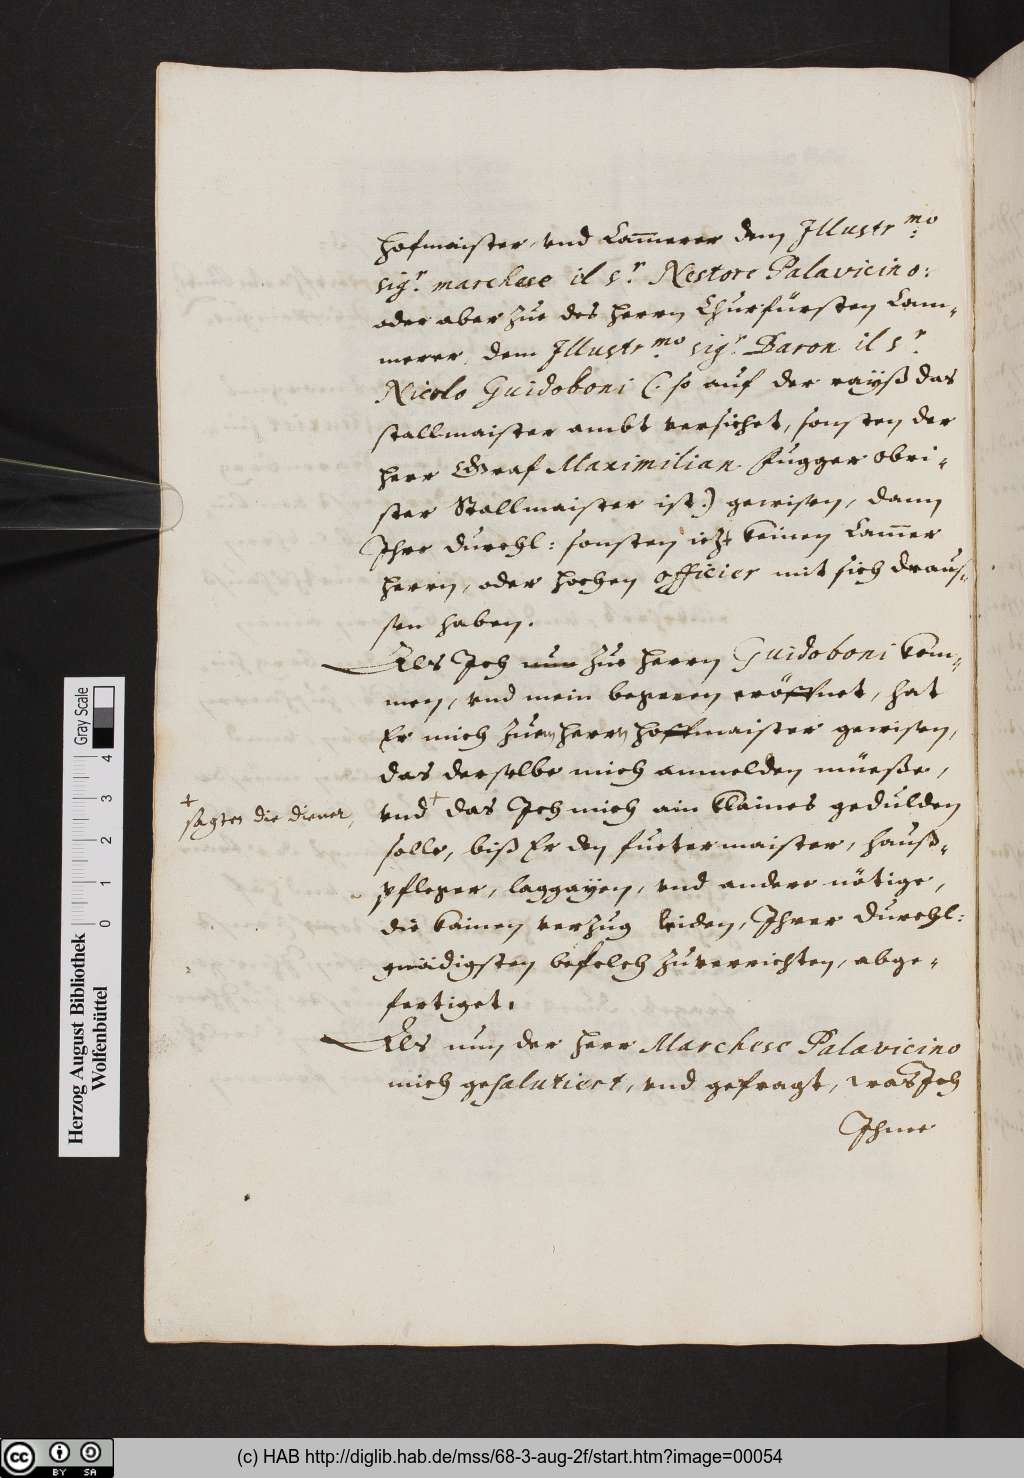 hofmaister, vnd Cam̄erer dem Illustr:mo
sig:r marchese il s:r Nestore Palavicino:
oder aber zue des herrn Churfürsten Cam-
merer, dem Illustr:mo sig:r Baron il s:r
Nicolo Guidoboni (: so auf der rayß das
stallmaister ambt versichet, sonsten der
herr Graf Maximilian Fugger obri-
ster Stallmaister ist:) gewisen, dann
Ihre durchl: sonsten iezt keinen Cam̄er
herrn, oder hochen officier mit sich draus-
sen haben.
Als Ich nun zue herrn Guidoboni kom-
men, vnd mein begeren eröffnet, hat
Er mich zuem herrn hoffmaister gewisen,
das derselbe mich anmelden müesse,
+
sagten die diener,
vnd + das Ich mich ain klaines gedulden
solle, biß Er den fuetermaister, hauß-
pfleger, laggayen, vnd andere nötige,
die kainen verzug leiden, Ihrer durchl:
gnädigsten befelch zuverrichten, abge-
fertiget.
Als nun der herr Marchese Palavicino
mich gesalutiert, vnd gefragt, was Ich
Ihme
Herzog August Bibliothek
Wolfenbüttel
Gray Scale
0 1 2 3 4
cc BY SA
(c) HAB http://diglib.hab.de/mss/68-3-aug-2f/start.htm?image=00054